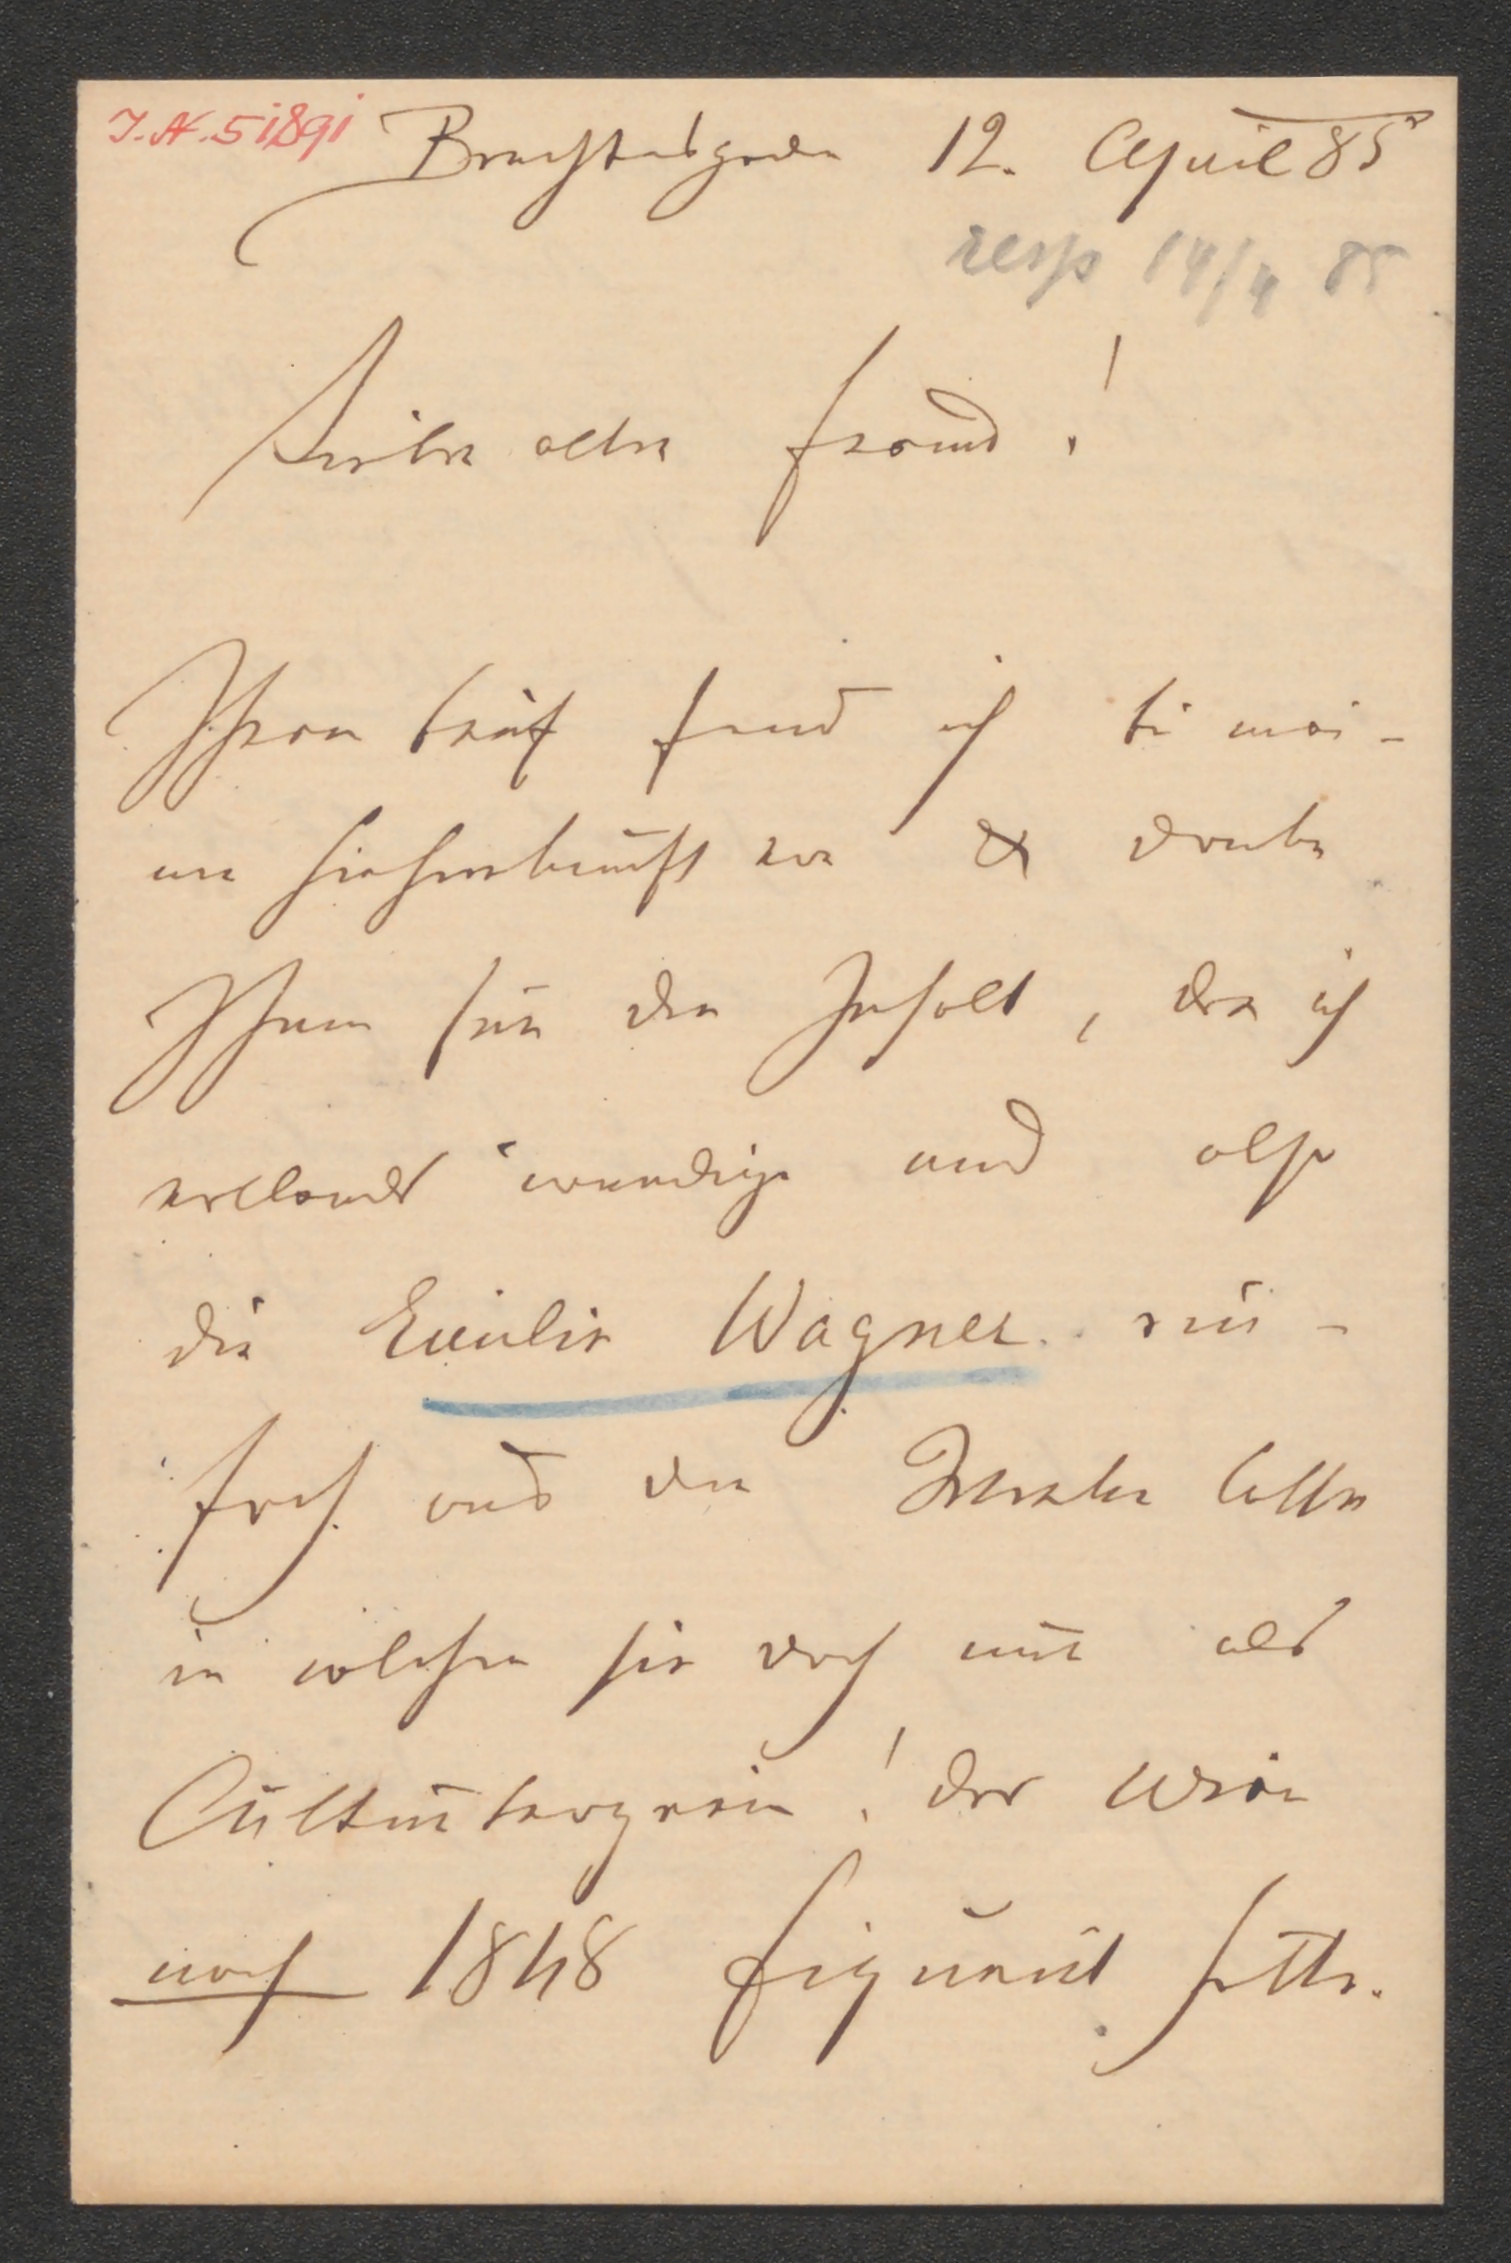 I.N. 51891
Berchtesgaden 12. April 85
resp 14/4 85
Lieber alter Freund!
Ihren Brief fand ich bei mei-
ner Hieherkunft vor & danke
Ihnen für den Inhalt, den ich
vollends würdige und also
die Emilie Wagner ein-
fach aus den Theater
in welchen sie doch nur als
der Wien
nach 1848 figurirt hätte.